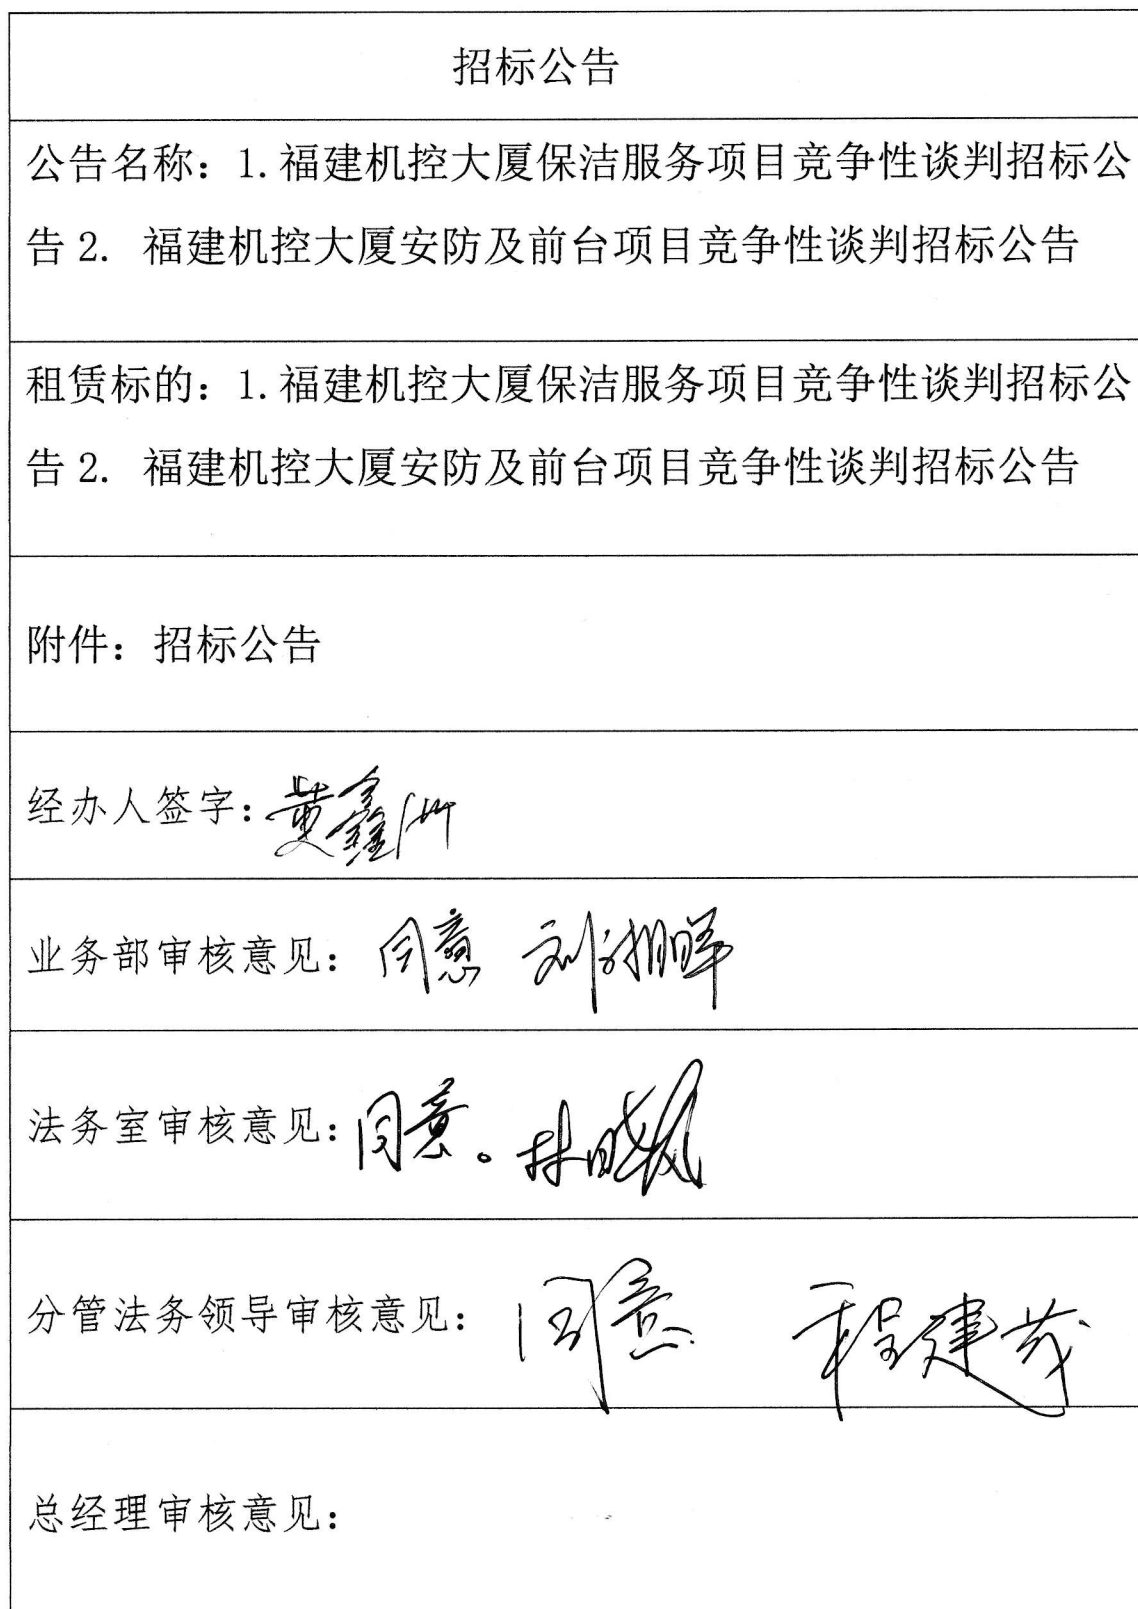 招标公告
公告名称：1.福建机控大厦保洁服务项目竞争性谈判招标公
告 2. 福建机控大厦安防及前台项目竞争性谈判招标公告
租赁标的：1.福建机控大厦保洁服务项目竞争性谈判招标公
告 2. 福建机控大厦安防及前台项目竞争性谈判招标公告
附件：招标公告
经办人签字：黄鑫洲
业务部审核意见：同意 刘湘晖
法务室审核意见：同意。林晓枫
分管法务领导审核意见：同意 程建茂
总经理审核意见：